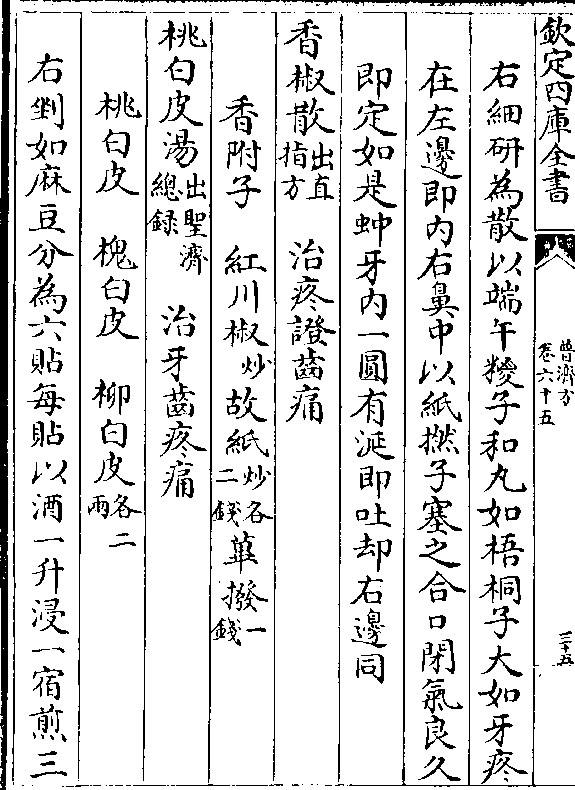 欽定四庫全書
普濟方
卷六十五
三十五
右細研為散以端午糉子和丸如梧桐子大如牙疼
在左邊即内右鼻中以紙撚子塞之合口閉氣良久
即定如是蚛牙内一圓有涎即吐却右邊同
香椒散出直指方 治疼證齒痛
香附子 紅川椒炒 故紙炒各二錢 蓽撥一錢
桃白皮湯出聖濟總録 治牙齒疼痛
桃白皮 槐白皮 柳白皮各二兩
右剉如麻豆分為六貼每貼以酒一升浸一宿煎三